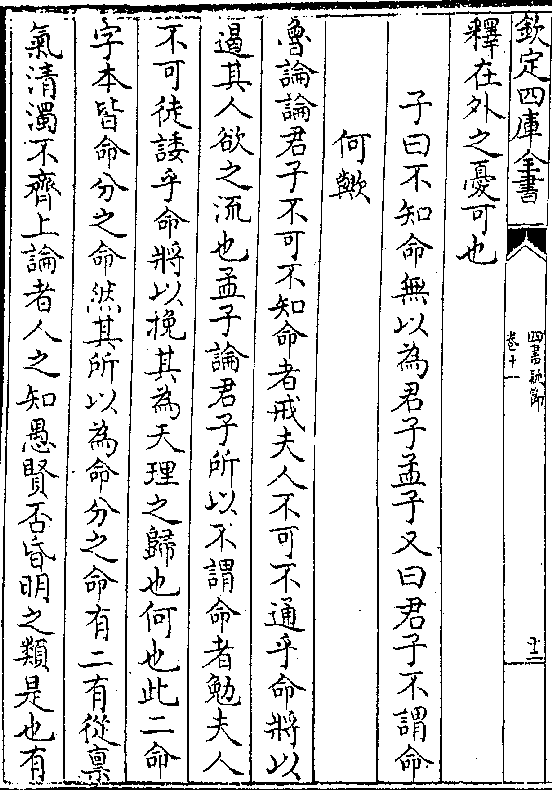 欽定四庫全書
四書疑節
卷十一
十三
釋在外之憂可也
子曰不知命無以為君子孟子又曰君子不謂命
何歟
魯論論君子不可不知命者戒夫人不可不通乎命將以
遏其人欲之流也孟子論君子所以不謂命者勉夫人
不可徒諉乎命將以挽其為天理之歸也何也此二命
字本皆命分之命然其所以為命分之命有二有從禀
氣清濁不齊上論者人之知愚賢否昏明之類是也有